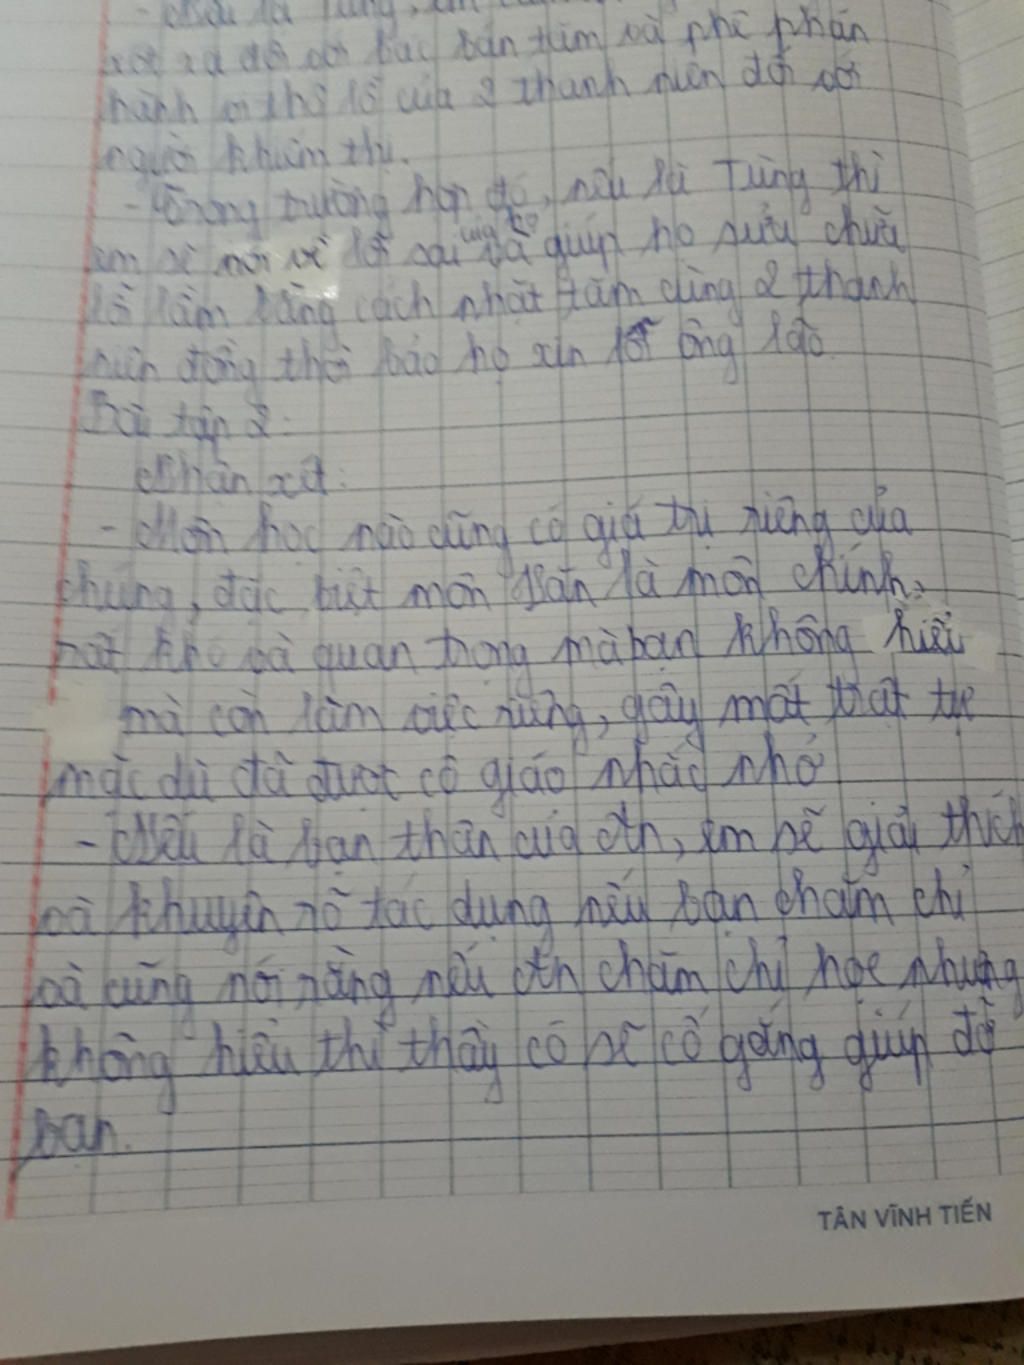 - Nếu là Tùng, em
xót xa đối với bác bán tăm và phê phán
hành vi thô lỗ của 2 thanh niên đối với
người khiếm thị.
- Trong trường hợp đó, nếu là Tùng thì
em sẽ nói về lỗi sai của họ và giúp họ sửu chữa
lỗi lầm bằng cách nhặt tăm cùng 2 thanh
niên đồng thời bảo họ xin lỗi ông lão
Bài tập 2:
Nhận xét:
- Môn học nào cũng có giá trị riêng của
chúng, đặc biệt môn Văn là môn chính,
rất khó và quan trọng mà bạn không hiểu
mà còn làm việc riêng, gây mất trật tự
mặc dù đã được cô giáo nhắc nhở
- Nếu là bạn thân của ơn, em sẽ giải thích
và khuyên rõ tác dụng nếu bạn chăm chỉ
và cũng nói rằng nếu chăm chỉ học nhưng
không hiểu thì thầy cô sẽ cố gắng giúp đỡ
bạn.
TÂN VĨNH TIẾN